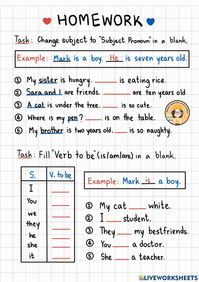 HOMEWORK
Task: Change subject to "Subject Pronoun" in a blank.
Example: Mark is a boy. He is seven years old.
① My sister is hungry. ____ is eating rice.
② Sara and I are friends. ____ are ten years old.
③ A cat is under the tree. ____ is so cute.
④ Where is my pen? ____ is on the table.
⑤ My brother is two years old. ____ is so naughty.
Task: Fill "Verb to be" (is/am/are) in a blank.
S. V. to be
I
You
we
they
he
she
it
Example: Mark is a boy.
① My cat ____ white.
② I ____ student.
③ They ____ my bestfriends.
④ You ____ a doctor.
⑤ She ____ a teacher.
LIVEWORKSHEETS